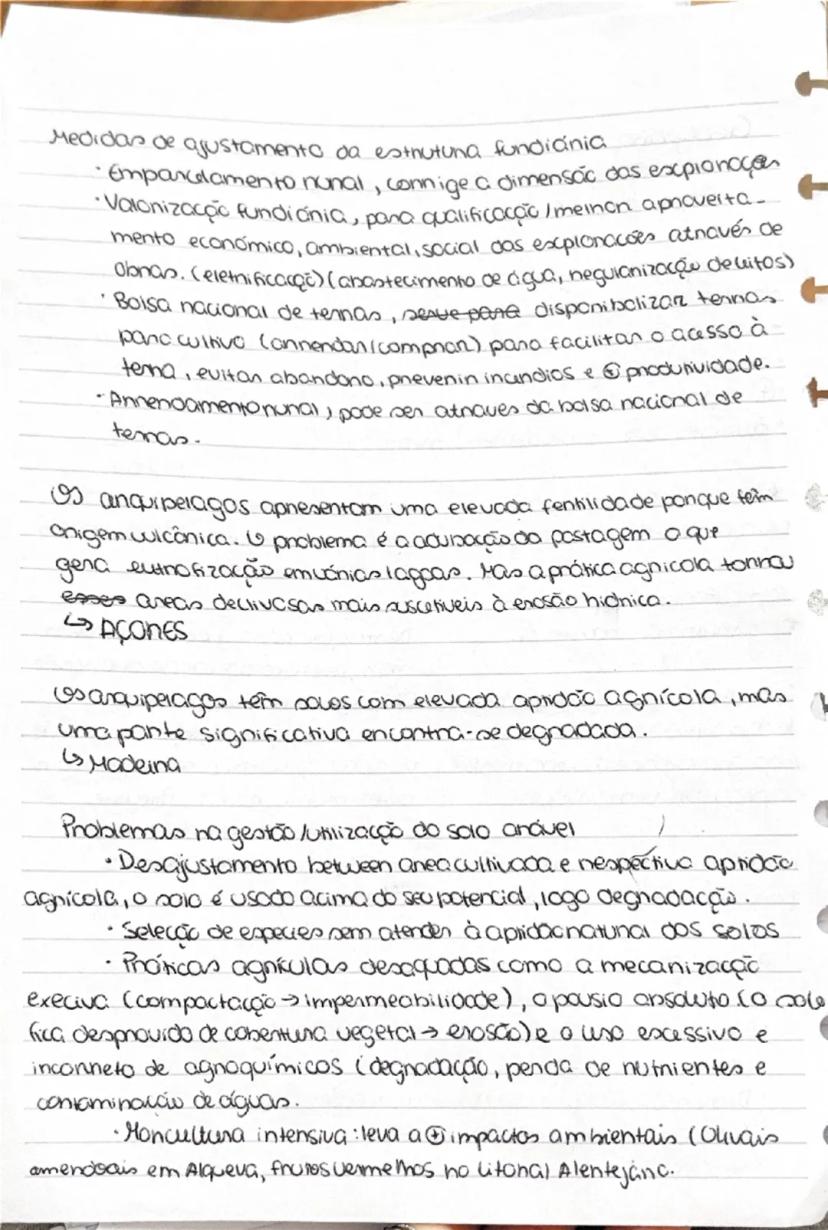 Medidas de ajustamento da estrutura fundiária
· Emparcelamento rural, corrige a dimensão das explorações
· Valorização fundiária, para qualificação/melhor aproveita-
mento económico, ambiental, social das explorações através de
obras. (eletrificação) (abastecimento de água, regularização de leitos)
· Bolsa nacional de terras, serve para disponibilizar terras
para cultivo (arrendar/comprar) para facilitar o acesso à
terra, evitar abandono, prevenir incandios e ⊕ produtividade.
· Arrendamento rural, pode ser atraves da bolsa nacional de
terras.
Os arquipelagos apresentam uma elevada fertilidade porque têm
origem vulcânica. O problema é a adubação da pastagem o que
gera eutrofização em várias lagoas. Mas a prática agricola torna
esses areas declivosas mais suscetiveis à erosão hidrica.
↳ AÇORES
Os arquipelagos têm solos com elevada aptidão agrícola, mas
uma parte significativa encontra-se degradada.
↳ Madeira
Problemas na gestão/utilização do solo arável
· Desajustamento between area cultivada e respectiva aptidão
agrícola, o solo é usado acima do seu potencial, logo degradação.
· Seleção de especies sem atender à aptidão natural dos solos
· Práticas agrículas desaquadas como a mecanização
execiva (compactação → impermeabilidade), o pousio absoluto (o solo
fica desprovido de cobertura vegetal → erosão) e o uso excessivo e
incorreto de agroquímicos (degradação, perda de nutrientes e
contaminação de águas.
· Moncultura intensiva: leva a ⊕ impactos ambientais (Olivais
amendoais em Alqueva, frutos vermelhos no litoral Alentejano.